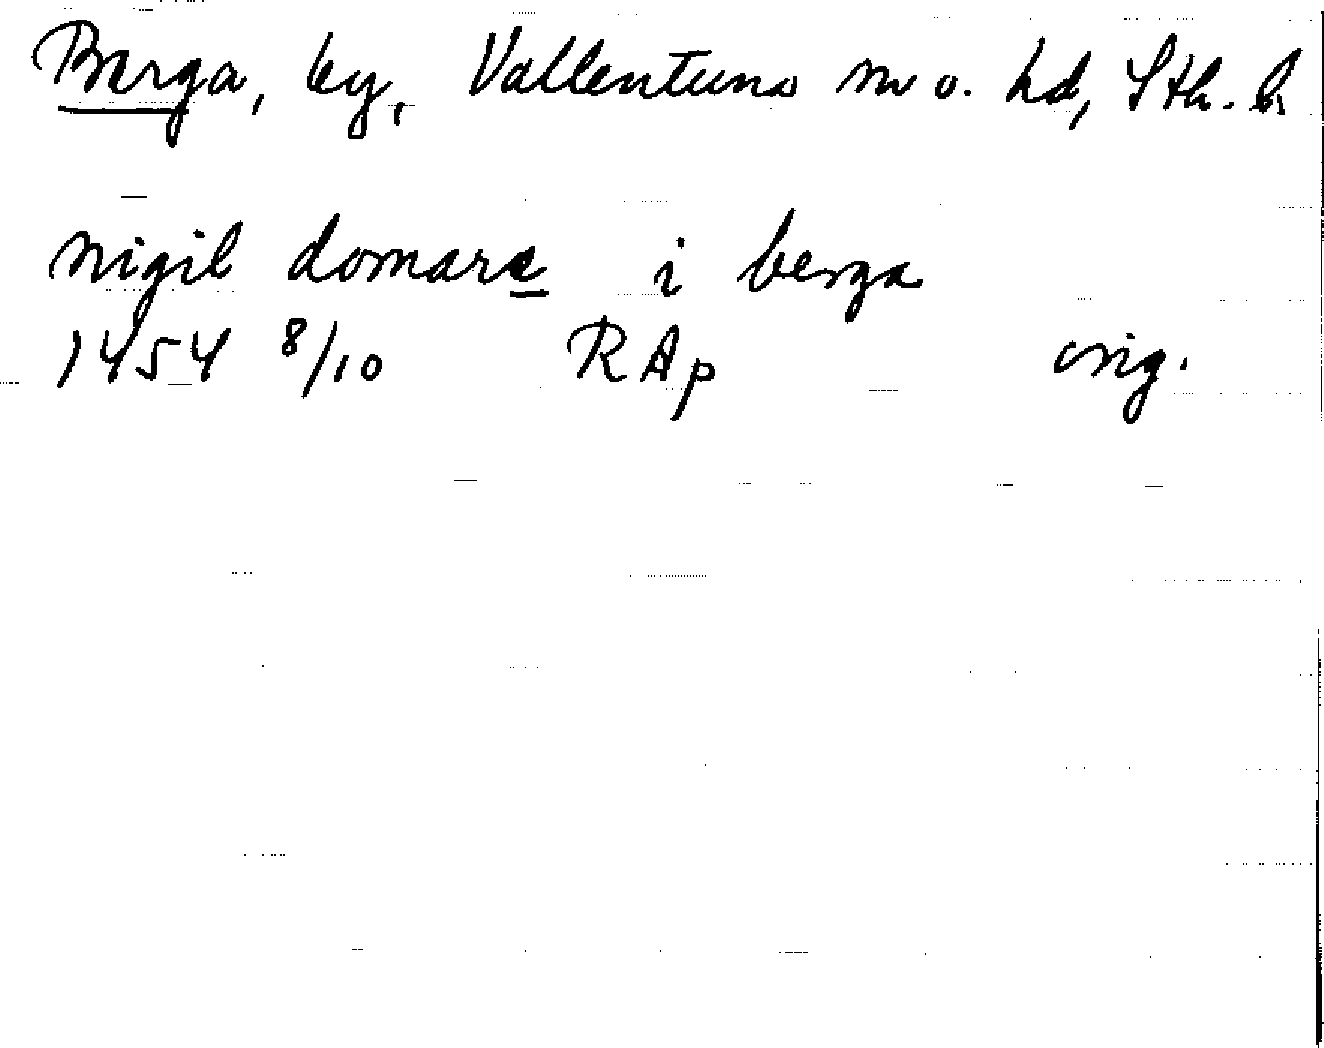 Berga, by, Vallentuna sn o. hd, Sth. l.
nigil domare i berga
1454 8/10 RAp orig.